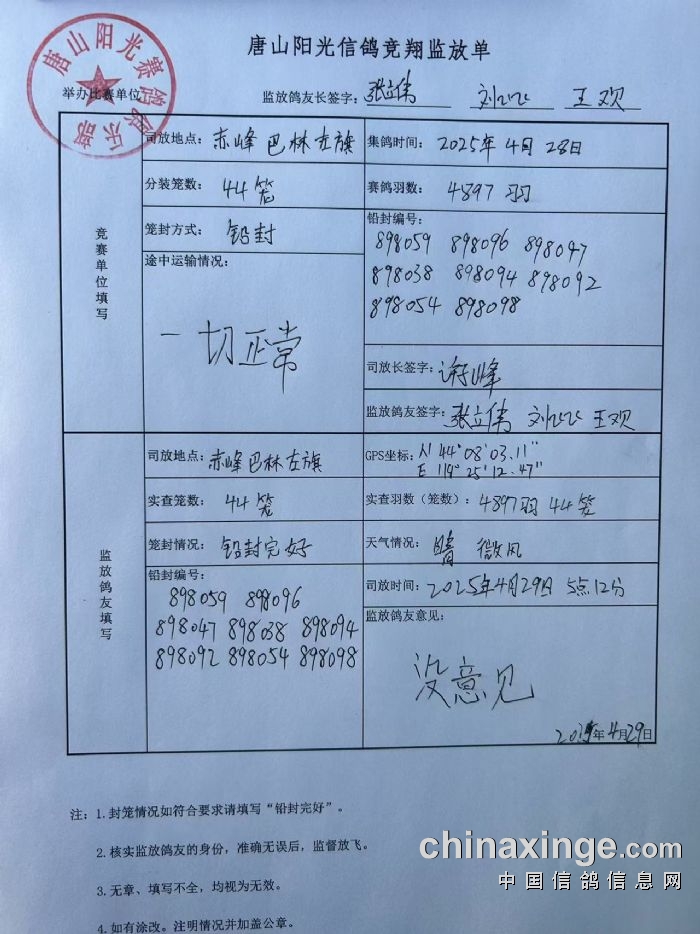 唐山阳光信鸽竞翔监放单
唐山阳光赛鸽俱乐部
举办比赛单位
监放鸽友长签字：张立伟 刘飞飞 王欢
竞赛单位填写
司放地点：赤峰巴林左旗
集鸽时间：2025年4月28日
分装笼数：44笼
赛鸽羽数：4897羽
笼封方式：铅封
铅封编号：
898059 898096 898047
898038 898094 898092
898054 898098
途中运输情况：
一切正常
司放长签字：谢峰
监放鸽友签字：张立伟 刘飞飞 王欢
监放鸽友填写
司放地点：赤峰巴林左旗
GPS坐标：N 44°08′03.11″
E 119°25′12.47″
实查笼数：44笼
实查羽数（笼数）：4897羽 44笼
笼封情况：铅封完好
天气情况：晴 微风
铅封编号：
898059 898096
898047 898038 898094
898092 898054 898098
司放时间：2025年4月29日 5点12分
监放鸽友意见：
没意见
2025年4月29日
注：1.封笼情况如符合要求请填写“铅封完好”。
2.核实监放鸽友的身份，准确无误后，监督放飞。
3.无章、填写不全，均视为无效。
4.如有涂改。注明情况并加盖公章。
chinaxinge.com
中国信鸽信息网